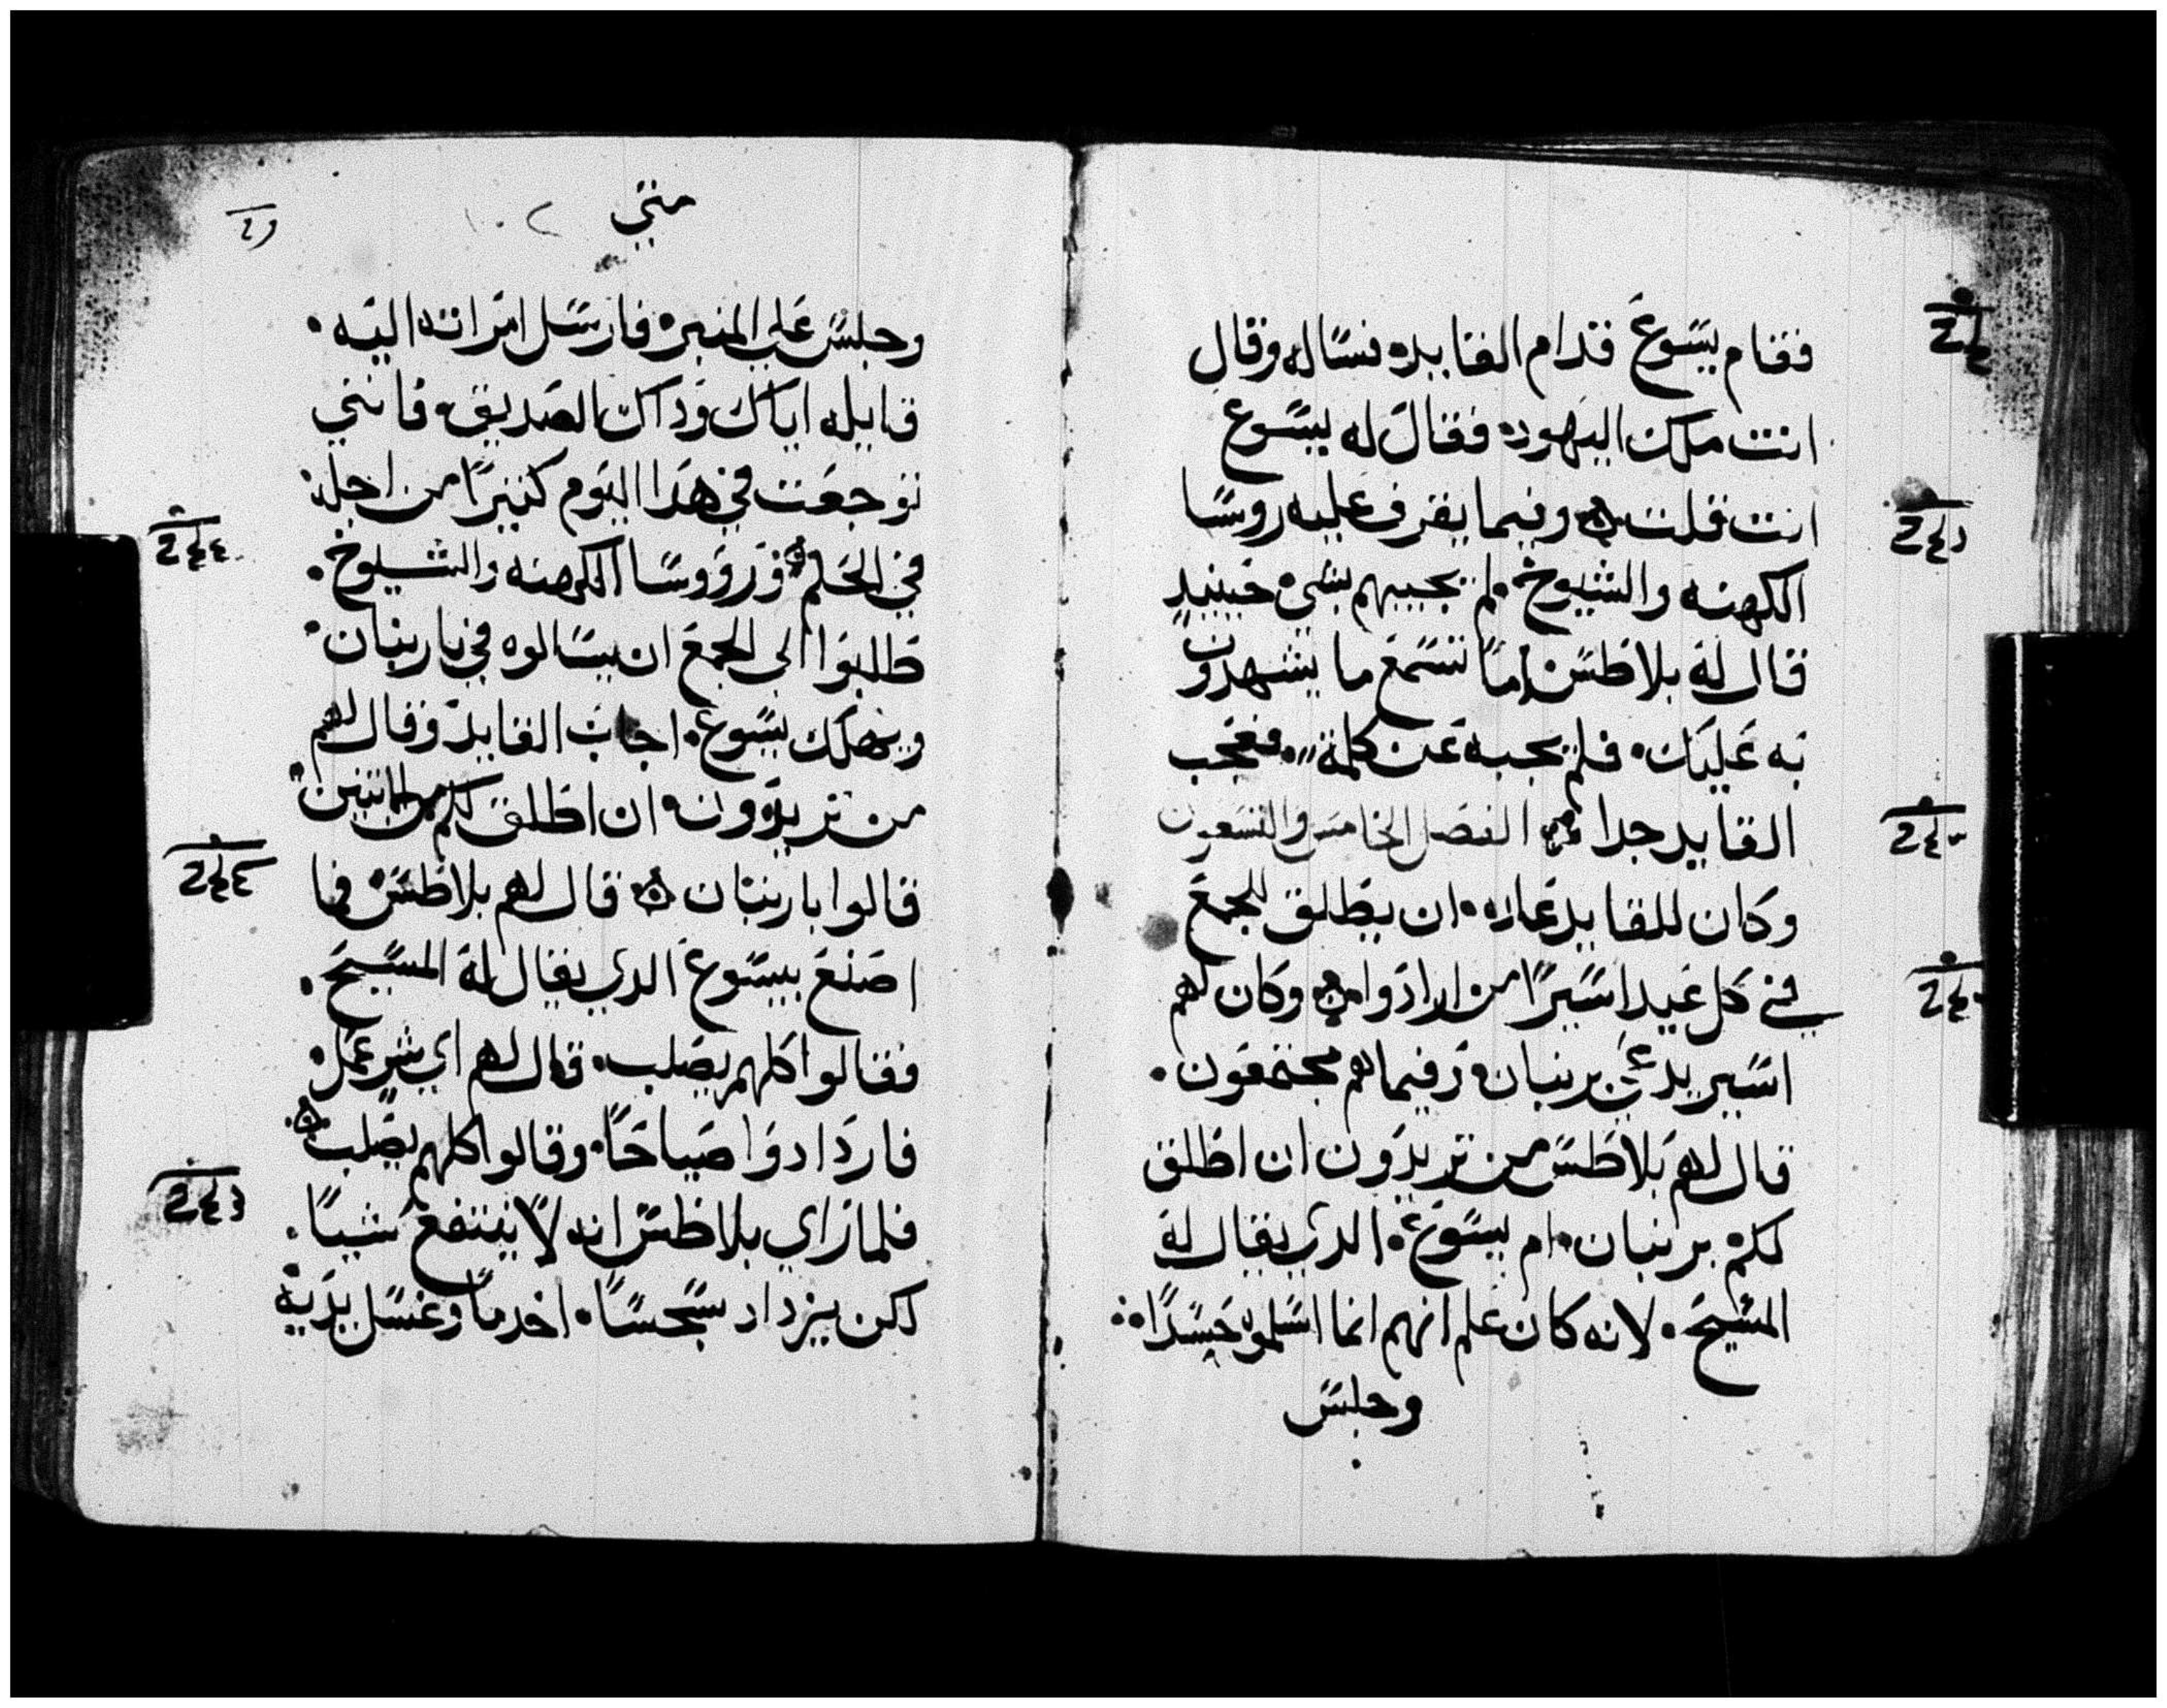 فقام يسوع قدام القايد، فساله وقال
انت ملك اليهود، فقال له يسوع
انت قلت ۞ وفيما يقرف عليه روسا
الكهنه والشيوخ. لم يجيبهم بشي حينيد
قال له بلاطس اما تسمع ما يشهدون
به عليك. فلم يجبه عن كلمة. فعجب
القايد جدا ۞ الفصل الخامس والتسعون
وكان للقايد عاده. ان يطلق للجمع
في كل عيد اسيرًا من ارادوا ۞ وكان لهم
اسير يدعي برنبان، وفيما هم مجتمعون.
قال لهم بلاطس من تريدون ان اطلق
لكم برنبان. ام يسوع. الدي يقال له
المسيح. لانه كان علم انهم انما اسلموه حسدًا:
وجلس
متي
وجلس علي المنبر. فارسل امراته اليه.
قايله اياك وداك الصديق. فانني
توجعت في هدا اليوم كثيرًا من اجله
في الحلم ۞ ورووسا الكهنه والشيوخ.
طلبوا الي الجمع ان يسالوه في باربنان.
ويهلك يسوع. اجاب القايد وقال لهم
من تريدون ان اطلق لكم من الاتنين.
قالوا باربنان ۞ قال لهم بلاطس فما
اصنع بيسوع الدي يقال له المسيح.
فقالوا كلهم يصلب. قال لهم اي شر عمل.
فازدادوا صياحًا. وقالوا كلهم يصلب ۞
فلما راي بلاطس انه لا ينتفع شيا.
لكن يزداد سجسًا. اخد ماً وغسل يديه